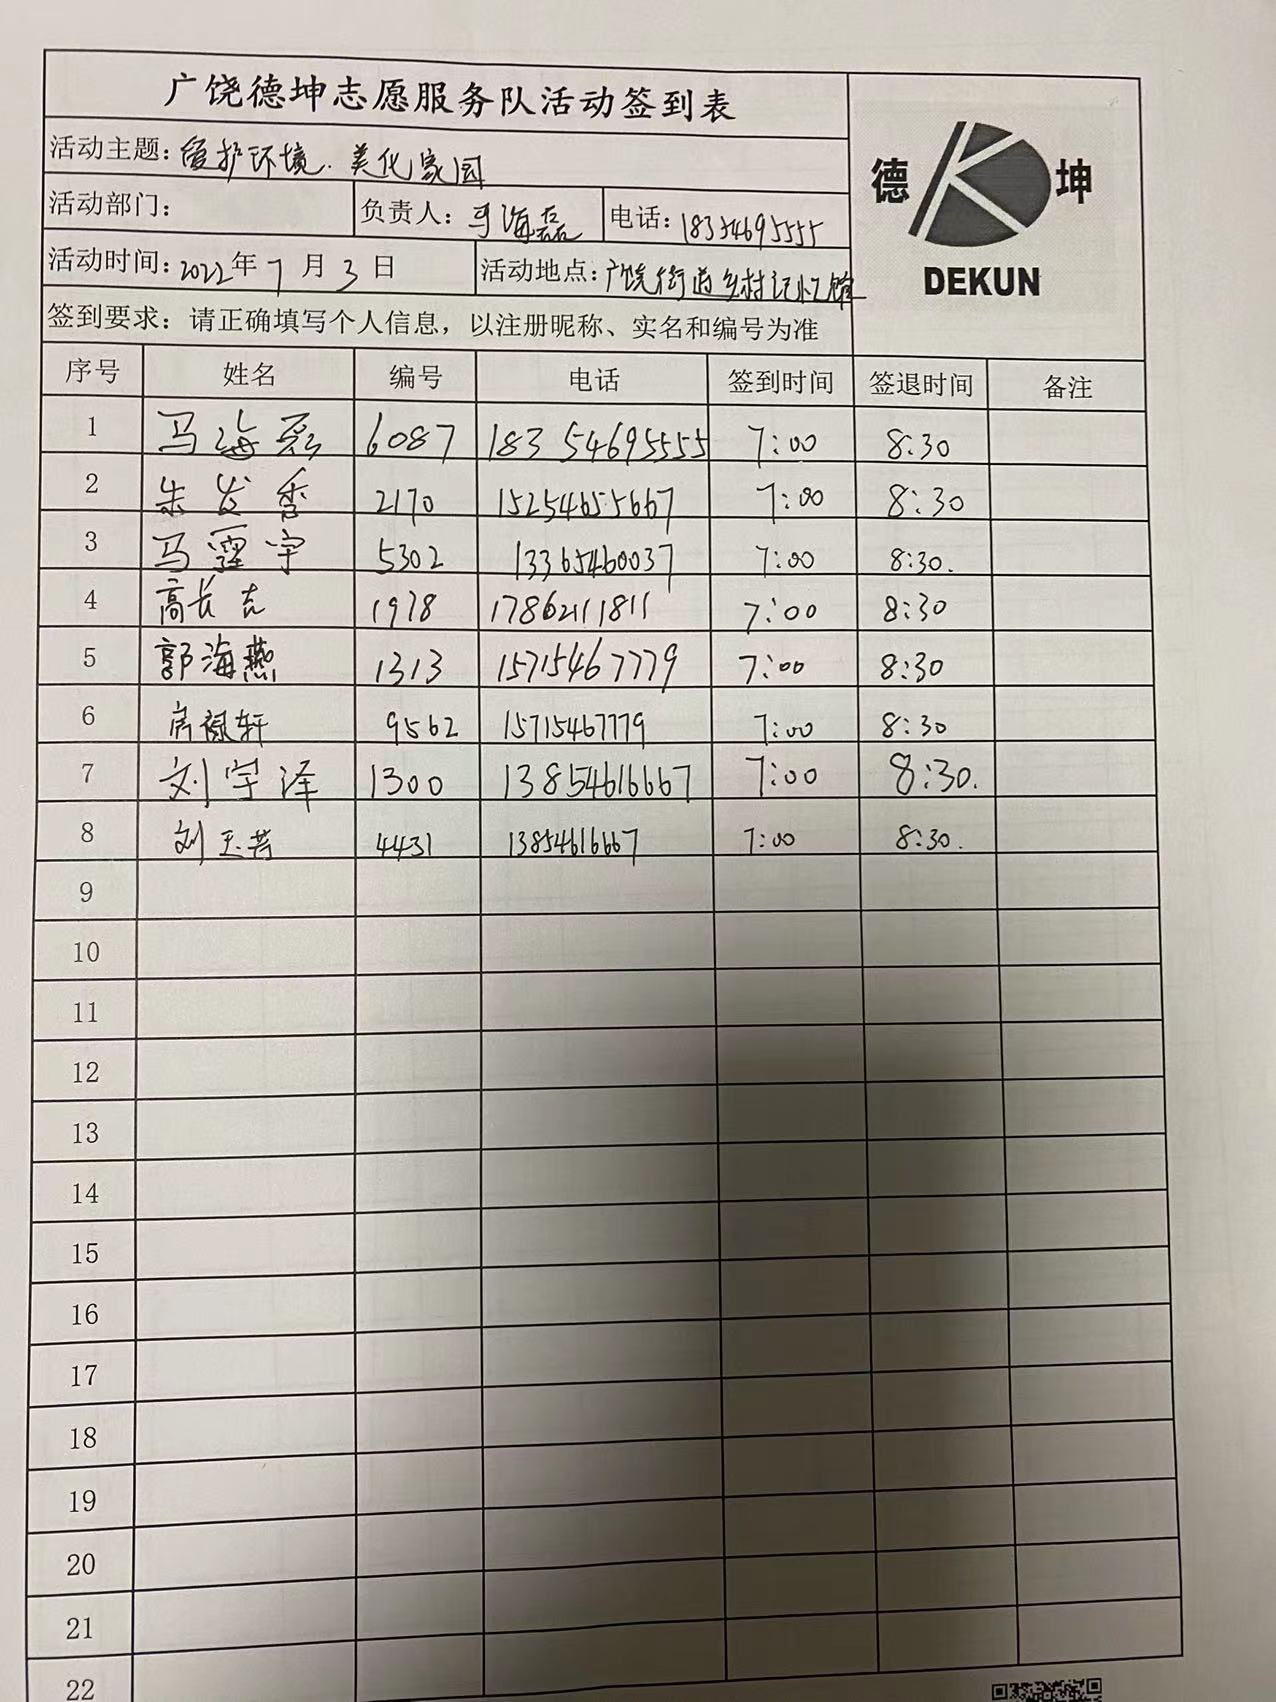 广饶德坤志愿服务队活动签到表
德 坤
DEKUN
活动主题：爱护环境.美化家园
活动部门： 负责人：马海磊 电话：18354695555
活动时间：2022年7月3日 活动地点：广饶街道乡村记忆馆
签到要求：请正确填写个人信息，以注册昵称、实名和编号为准
序号 姓名 编号 电话 签到时间 签退时间 备注
1 马海磊 6087 18354695555 7:00 8:30
2 朱发香 2170 15254655667 7:00 8:30
3 马霆宇 5302 13365460037 7:00 8:30.
4 高长吉 1978 17862111811 7:00 8:30
5 郭海燕 1313 15715467779 7:00 8:30
6 9562 15715467779 7:00 8:30
7 刘宇泽 1300 13854616667 7:00 8:30.
8 刘玉芳 4431 13854616667 7:00 8:30.
9
10
11
12
13
14
15
16
17
18
19
20
21
22